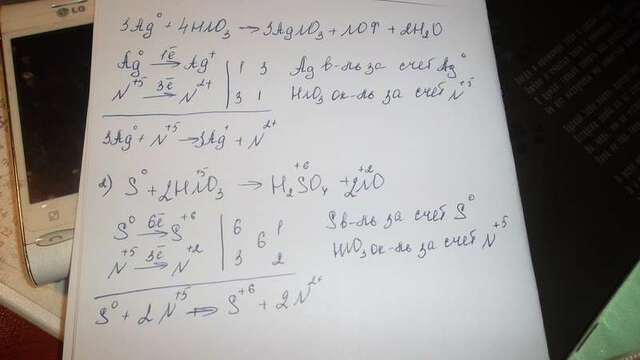 3Ag⁰ + 4HNO₃ → 3AgNO₃ + NO↑ + 2H₂O
Ag⁰ 1ē→ Ag⁺ | 1 3 Ag в-ль за счёт Ag⁰
N⁺⁵ 3ē→ N²⁺ | 3 1 HNO₃ ок-ль за счёт N⁺⁵
3Ag⁰ + N⁺⁵ → 3Ag⁺ + N²⁺
2) S⁰ + 2HN⁺⁵O₃ → H₂S⁺⁶O₄ + 2N⁺²O
S⁰ 6ē→ S⁺⁶ | 6 6 1 S в-ль за счёт S⁰
N⁺⁵ 3ē→ N⁺² | 3 2 HNO₃ ок-ль за счёт N⁺⁵
S⁰ + 2N⁺⁵ → S⁺⁶ + 2N²⁺
LG